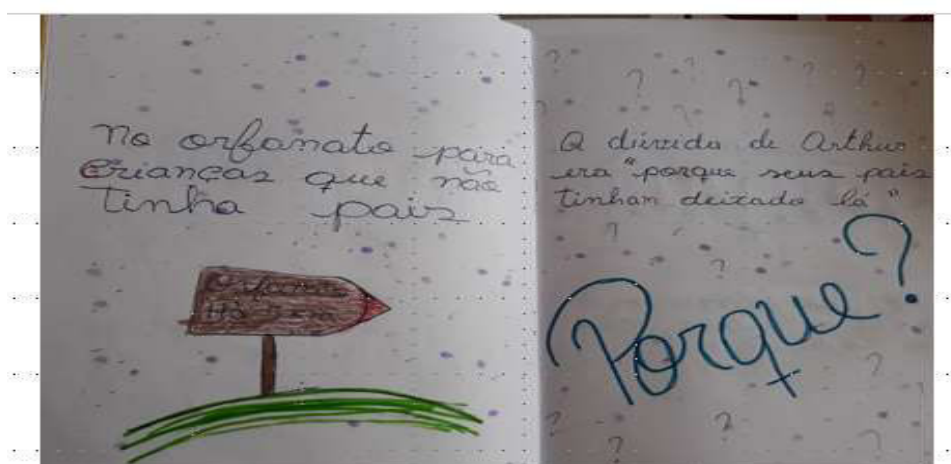 No orfanato para
crianças que não
tinha pais
A dúvida de Arthur
era "porque seus pais
tinham deixado lá"
Porque?